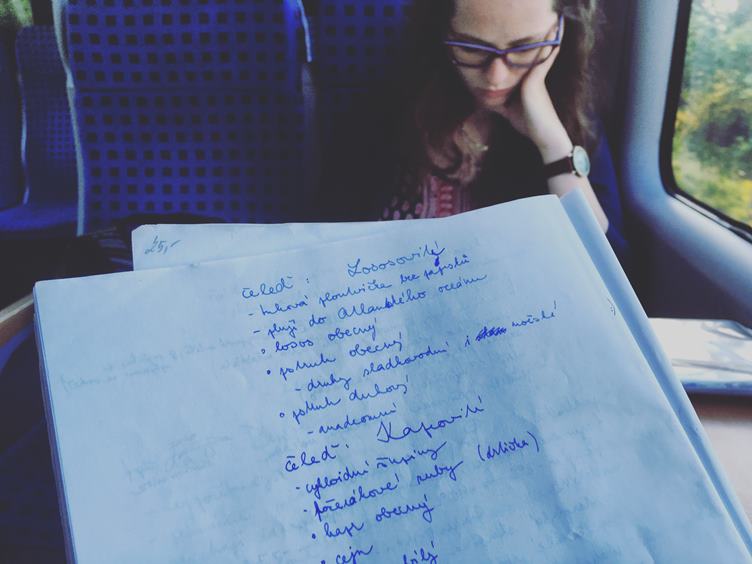 25,-
čeleď: Lososovití
- tuková ploutvička bez paprsků
- plují do Atlantského oceánu
• losos obecný
• pstruh obecný
- druhy sladkovodní i mořské
• pstruh duhový
čeleď: Kaprovití
- cykloidní šupiny
- požerákové zuby (drtička)
• kapr obecný
• cejn
bílý